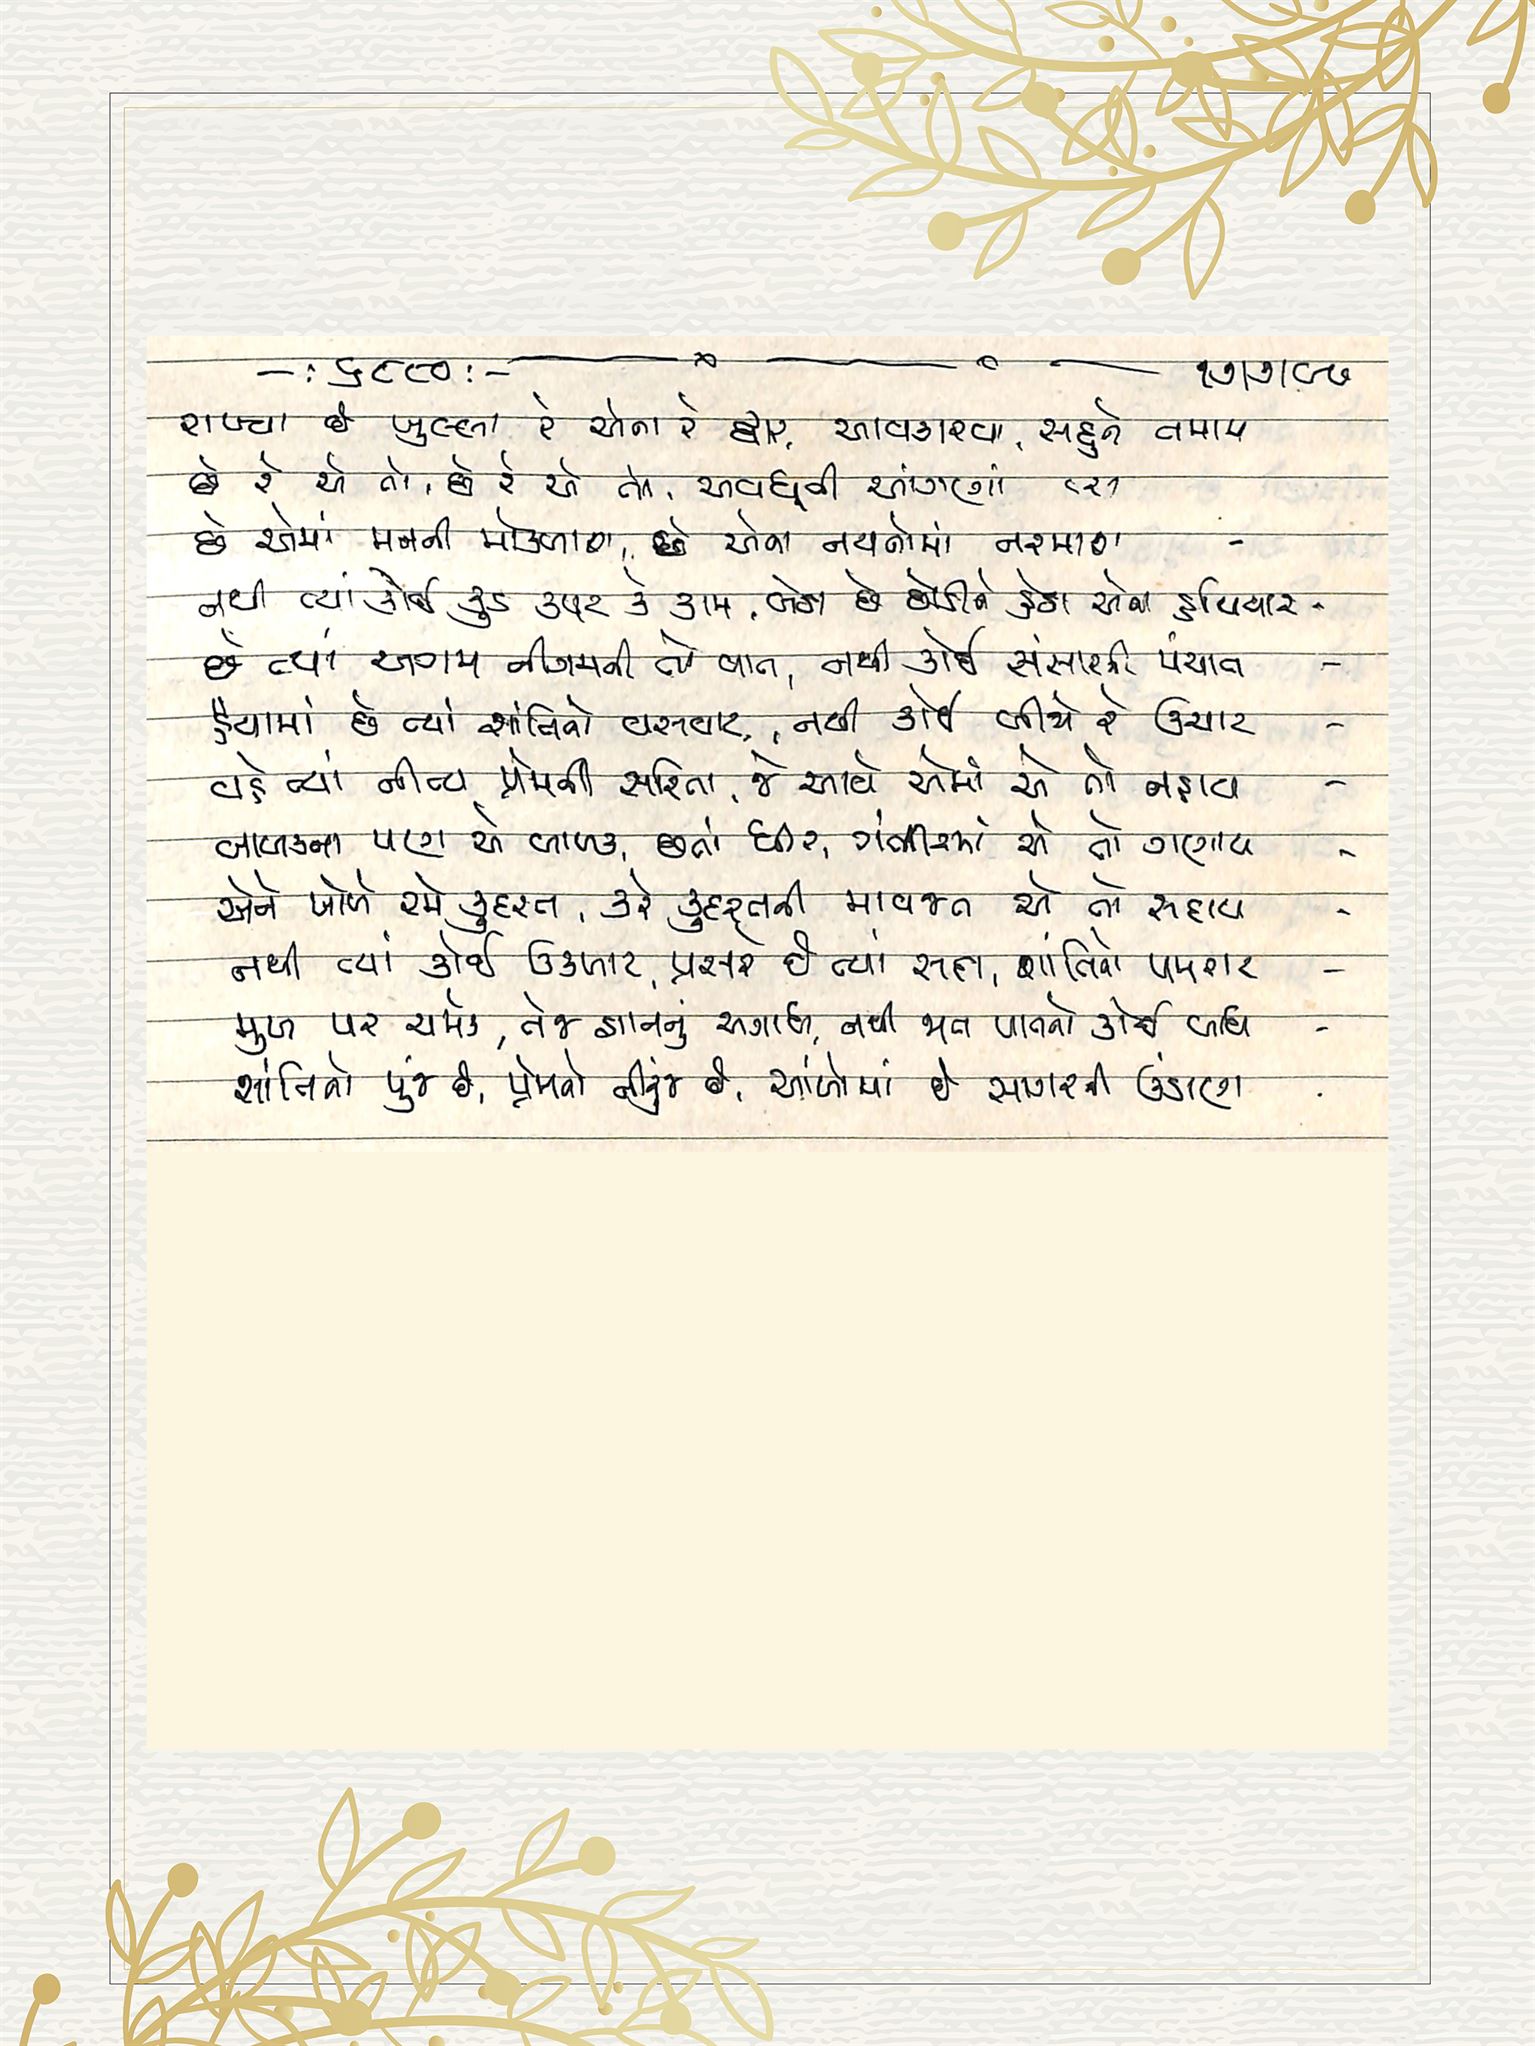 -: ૬૮૮૦:- ૧૭/૭/૯૭
રાખ્યા છે ખુલ્લા રે એના રે દ્વાર, આવકારવા, સહુને તમામ
છે રે એ તો, છે રે એ તો, અવધૂતની આંગણાં
છે એમાં મનની મોકળાશ, છે એના નયનોમાં નરમાશ -
નથી ત્યાં કોઈ કૂડ કપટ કે કામ, બેઠા છે છોડીને હેઠા એના હથિયાર -
છે ત્યાં અગમ નીગમની તો વાત, નથી કોઈ સંસારની પંચાત -
હૈયામાં છે ત્યાં શાંતિનો વસવાટ, નથી કોઈ બીજો રે ઉચાટ -
વહે ત્યાં નીત્ય પ્રેમની સરિતા, જે આવે એમાં એ તો નહાય -
બાળકના પણ એ બાળક, છતાં ધીર, ગંભીરમાં એ તો ગણાય -
એને ખોળે રમે કુદરત, કરે કુદરતની માવજત એ તો સદાય -
નથી ત્યાં કોઈ ઉકળાટ, પ્રસરે છે ત્યાં સદા, શાંતિનો પમરાટ -
મુખ પર ચમકે, તેજ જ્ઞાનનું અગાધ, નથી ભાત જાતનો કોઈ બાધ -
શાંતિનો પુંજ છે, પ્રેમનો નીકુંજ છે, આંખોમાં છે સાગરની ઉંડાણ .